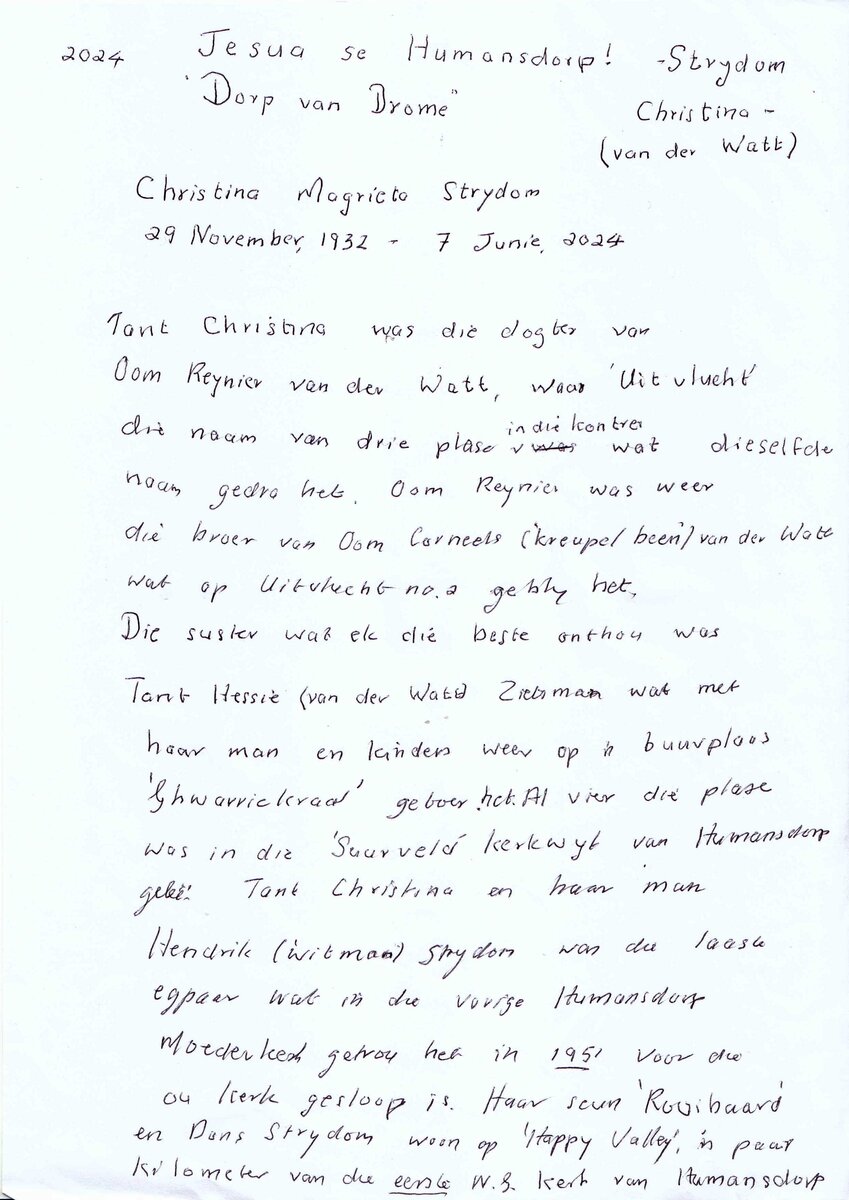 2024 Jesua se Humansdorp! - Strydom
"Dorp van Drome" Christina -
(van der Watt)
Christina Magrieta Strydom
29 November, 1932 - 7 Junie, 2024
Tant Christina was die dogter van
Oom Reynier van der Watt, waar 'Uitvlucht'
die naam van drie plase in die kontrei wat dieselfde
naam gedra het. Oom Reynier was weer
die broer van Oom Corneels ('kreupel been') van der Watt
wat op Uitvlucht no. 2 gebly het.
Die suster wat ek die beste onthou was
Tant Hessie (van der Watt) Zietsman wat met
haar man en kinders weer op 'n buurplaas
'Ghwarriekraal' geboer het. Al vier die plase
was in die 'Suurveld' kerkwyk van Humansdorp
geleë! Tant Christina en haar man
Hendrik (witman) Strydom was die laaste
egpaar wat in die vorige Humansdorp
Moederkerk getrou het in 1951 voor die
ou kerk gesloop is. Haar seun 'Rooibaard'
en Dans Strydom woon op 'Happy Valley', 'n paar
kilometer van die eerste N.G. kerk van Humansdorp